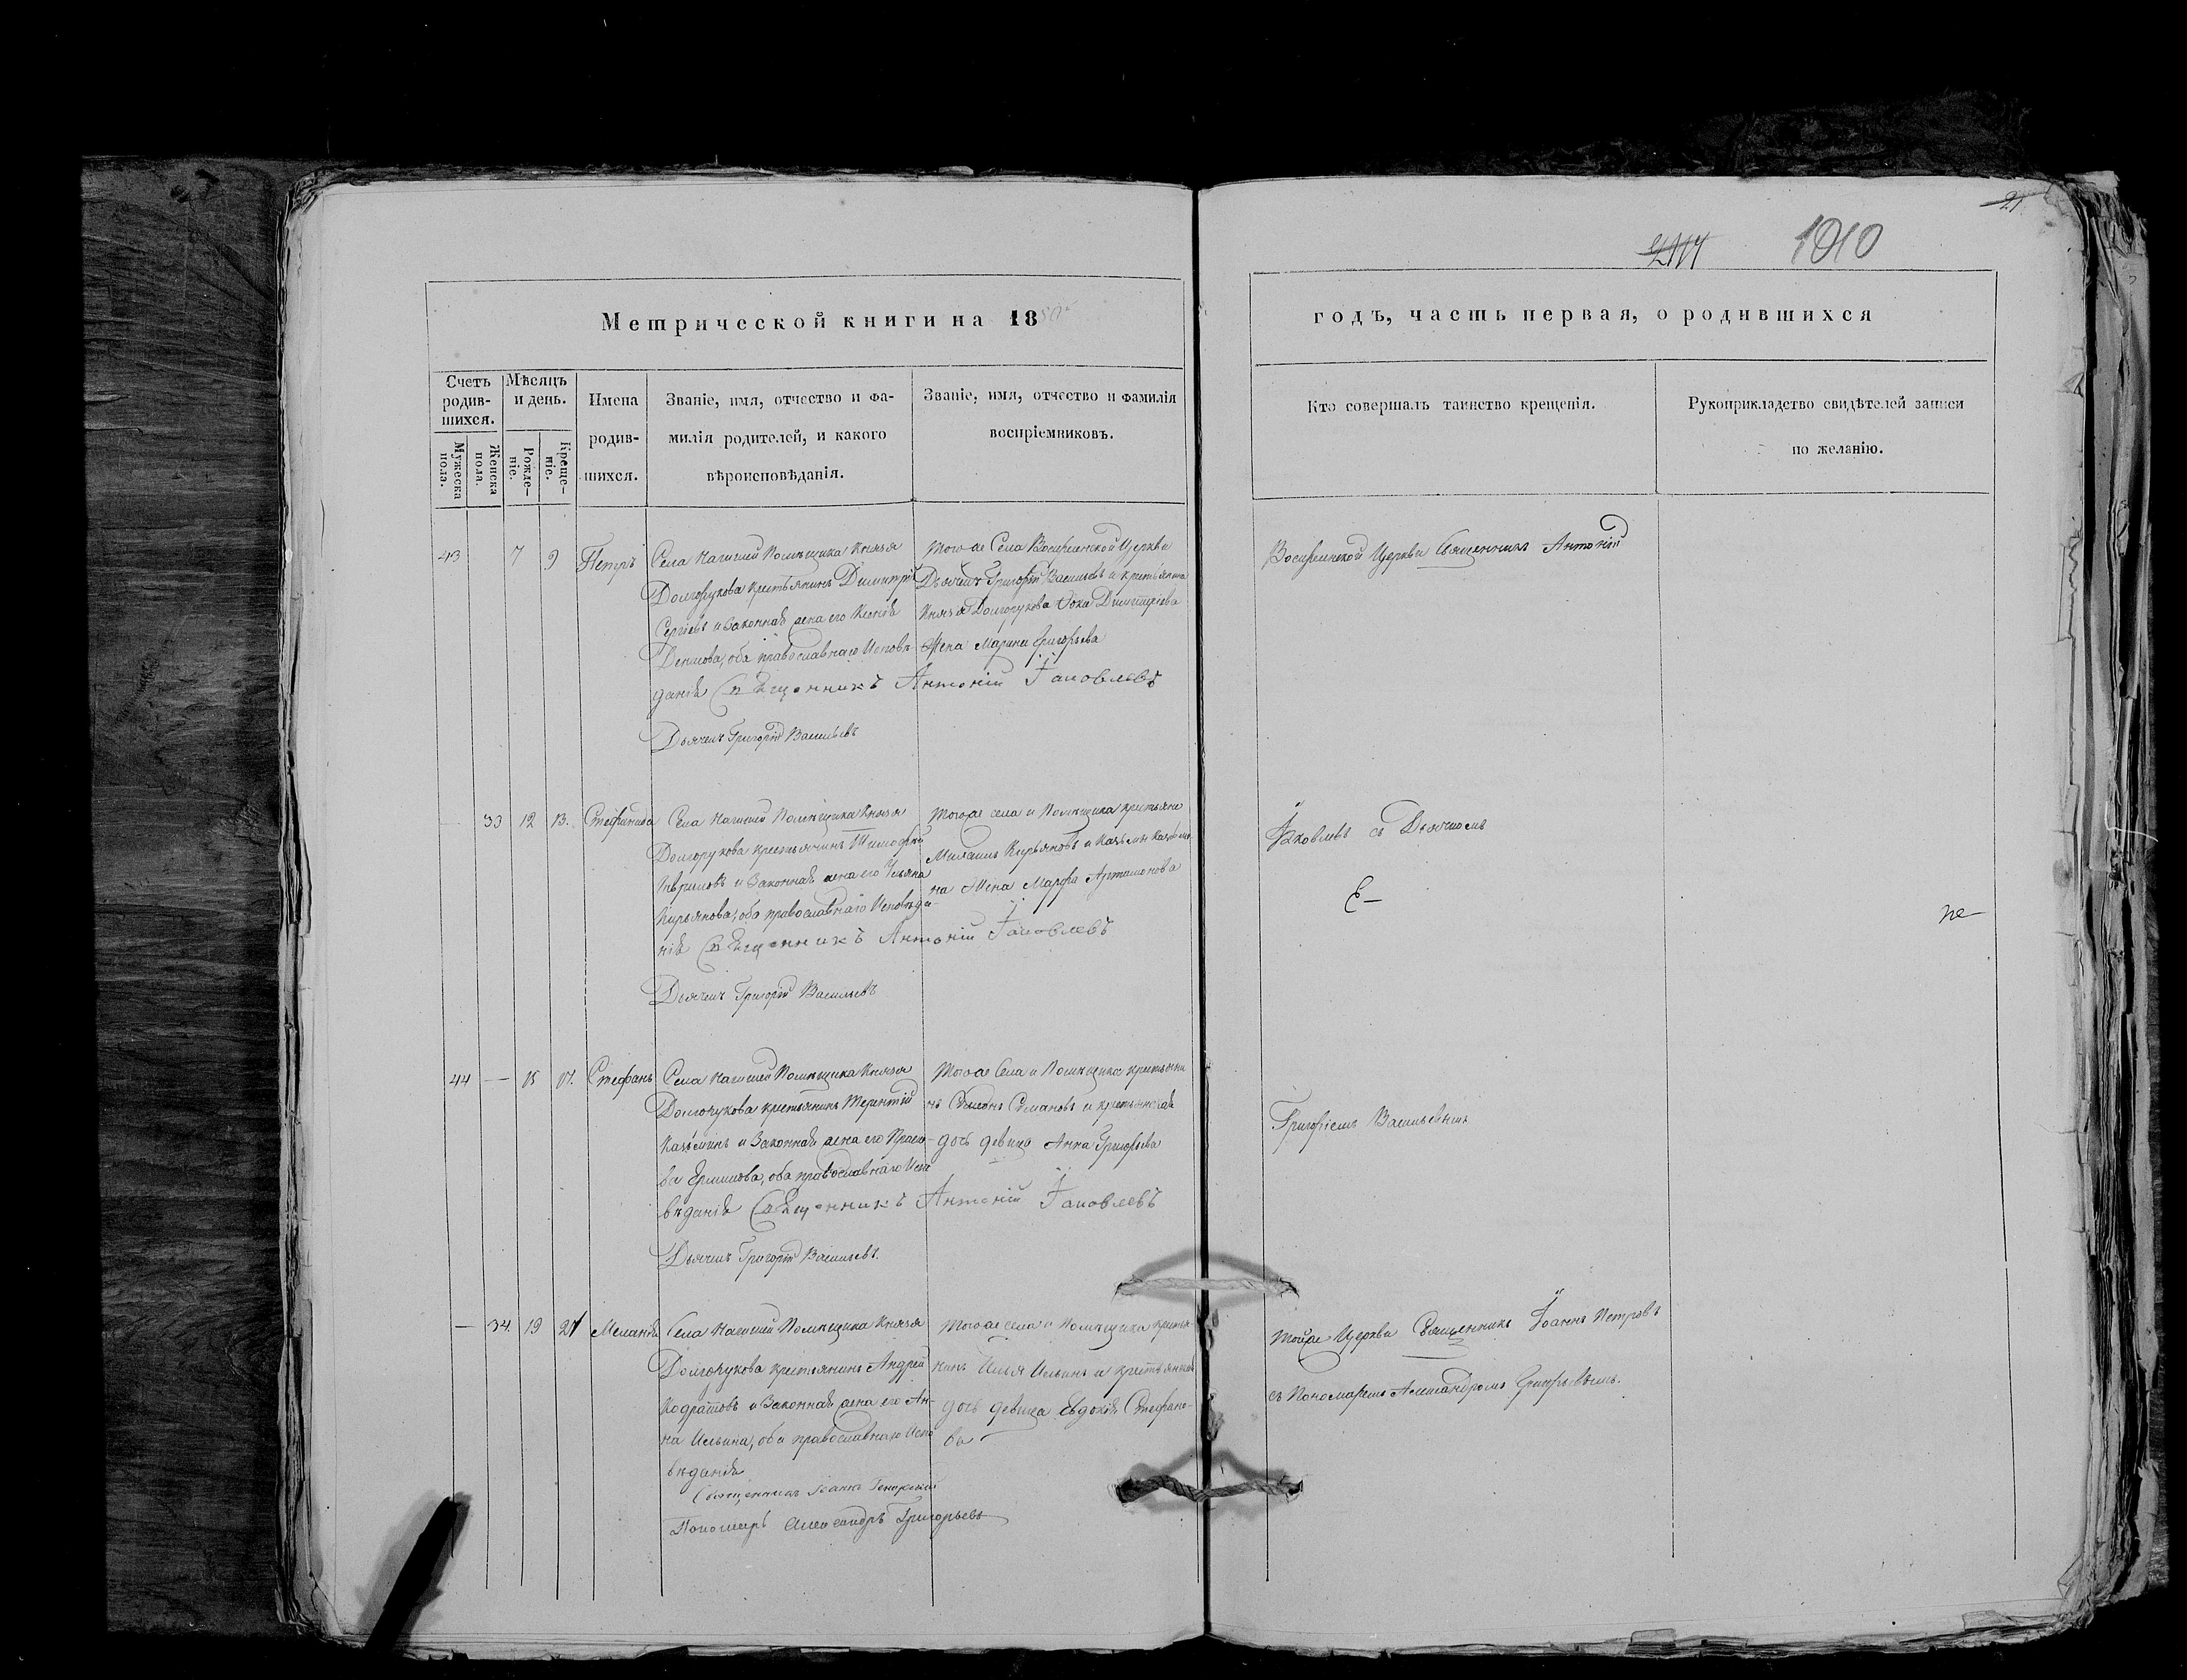 21
1010
Метрической книги на 18
годъ, часть первая, о родившихся
Счетъ родив-шихся.
Мужеска пола.
Женска пола.
Мѣсяцъ и день.
Рожде-ніе.
Креще-ніе.
Имена
родив-
шихся.
Званіе, имя, отчество и фа-
милія родителей, и какого
вѣроисповѣданія.
Званіе, имя, отчество и фамилія
воспріемниковъ.
Кто совершалъ таинство крещенія.
Рукоприкладство свидѣтелей записи
по желанію.
43 7 9 Петръ
Села Нагишей Помѣщика Князя
Долгорукова крестьянинъ Димитрій
Сергіевъ и Законная жена его Ксенія
Денисова, оба православнаго Исповѣ-
данія Священникъ Антоній Іаковлевъ
Дьячекъ Григорій Васильевъ
Тогоже Села Воскресенской Церкви
Дьячекъ Григорій Васильевъ и крестьянина
Князя Долгорукова Фока Димитріева
Жена Марина Григорьева
Воскресенской Церкви Священникъ Антоній
33 12 13. Стефанида
Села Нагишей Помѣщика Князя
Долгорукова крестьянинъ Тимофей
Гавриловъ и Законная жена его Ульяна
Кирьянова, оба православнаго Исповѣда-
нія Священникъ Антоній Іаковлевъ
Дьячекъ Григорій Васильевъ
Тогоже села и Помѣщика крестьяне
Михаилъ Кирьяновъ и Казьмы
на Жена Марфа Артамонова
Іаковлевъ съ Дьячкомъ
44 — 15 17. Стефанъ
Села Нагишей Помѣщика Князя
Долгорукова крестьянинъ Терентій
Казьминъ и Законная жена его Праско-
вья Ермилова, оба православнаго Испо
вѣданія Священникъ Антоній Іаковлевъ
Дьячекъ Григорій Васильевъ.
Тогоже Села и Помѣщика крестьяни
нъ Симеонъ Симановъ и крестьянская
дочь девица Анна Григорьева
Григоріемъ Васильевымъ
— 34. 19 21 Меланія
Села Нагишей Помѣщика Князя
Долгорукова крестьянинъ Андрей
Кодратовъ и Законная жена его Ан-
на Ильина, оба православнаго Испо
вѣданія
Священникъ Іоаннъ
Пономарь Александръ Григорьевъ
Тогоже села и Помѣщика крестья-
нинъ Илья Ильинъ и крестьянская
дочь девица Евдокія Стефано-
ва
Тойже Церкви Священникъ Іоаннъ Петровъ
съ Пономаремъ Александромъ Григорьевымъ.